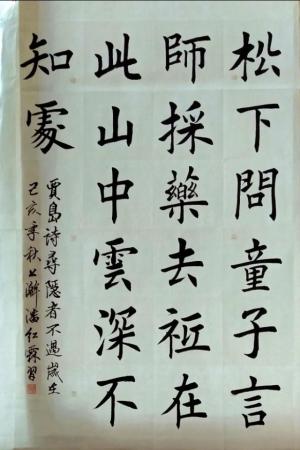 松下問童子言
師採藥去祗在
此山中雲深不
知處
賈島詩尋隱者不遇歲在
己亥季秋上澣潘红習